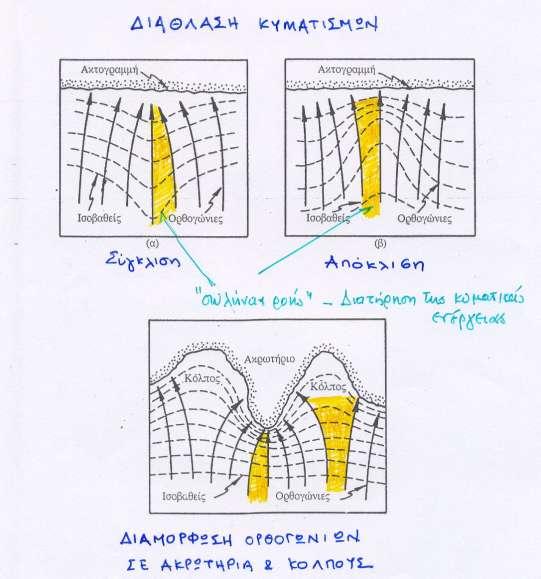 ΔΙΑΘΛΑΣΗ ΚΥΜΑΤΙΣΜΩΝ
Ακτογραμμή
Ισοβαθείς
Ορθογώνιες
(α)
Σύγκλιση
Ακτογραμμή
Ισοβαθείς
Ορθογώνιες
(β)
Απόκλιση
"σωλήνας ροής" – Διατήρηση της κυματικής
ενέργειας
Ακρωτήριο
Κόλπος
Κόλπος
Ισοβαθείς
Ορθογώνιες
ΔΙΑΜΟΡΦΩΣΗ ΟΡΘΟΓΩΝΙΩΝ
ΣΕ ΑΚΡΩΤΗΡΙΑ & ΚΟΛΠΟΥΣ